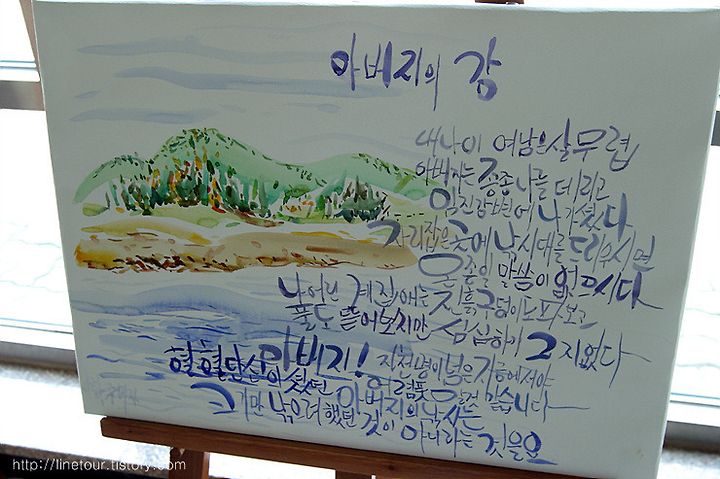 아버지의 강
내 나이 여남은 살 무렵
아버지는 종종 나를 데리고
임진강변에 나가셨다
자리잡은 곳에 낚시대를 드리우시면
온종일 말씀이 없으시다
나어린 계집애는 진흙구덩이도 파보고
풀도 뜯어보지만 심심하기 그지없다
혈혈단신이셨던 아버지! 지천명이 넘은 지금에 와서야
어렴풋 알 것 같습니다
그가 만 낚으려 했던 아버지의 낚시는
것이 아니라는 것을요
http://linetour.tistory.com